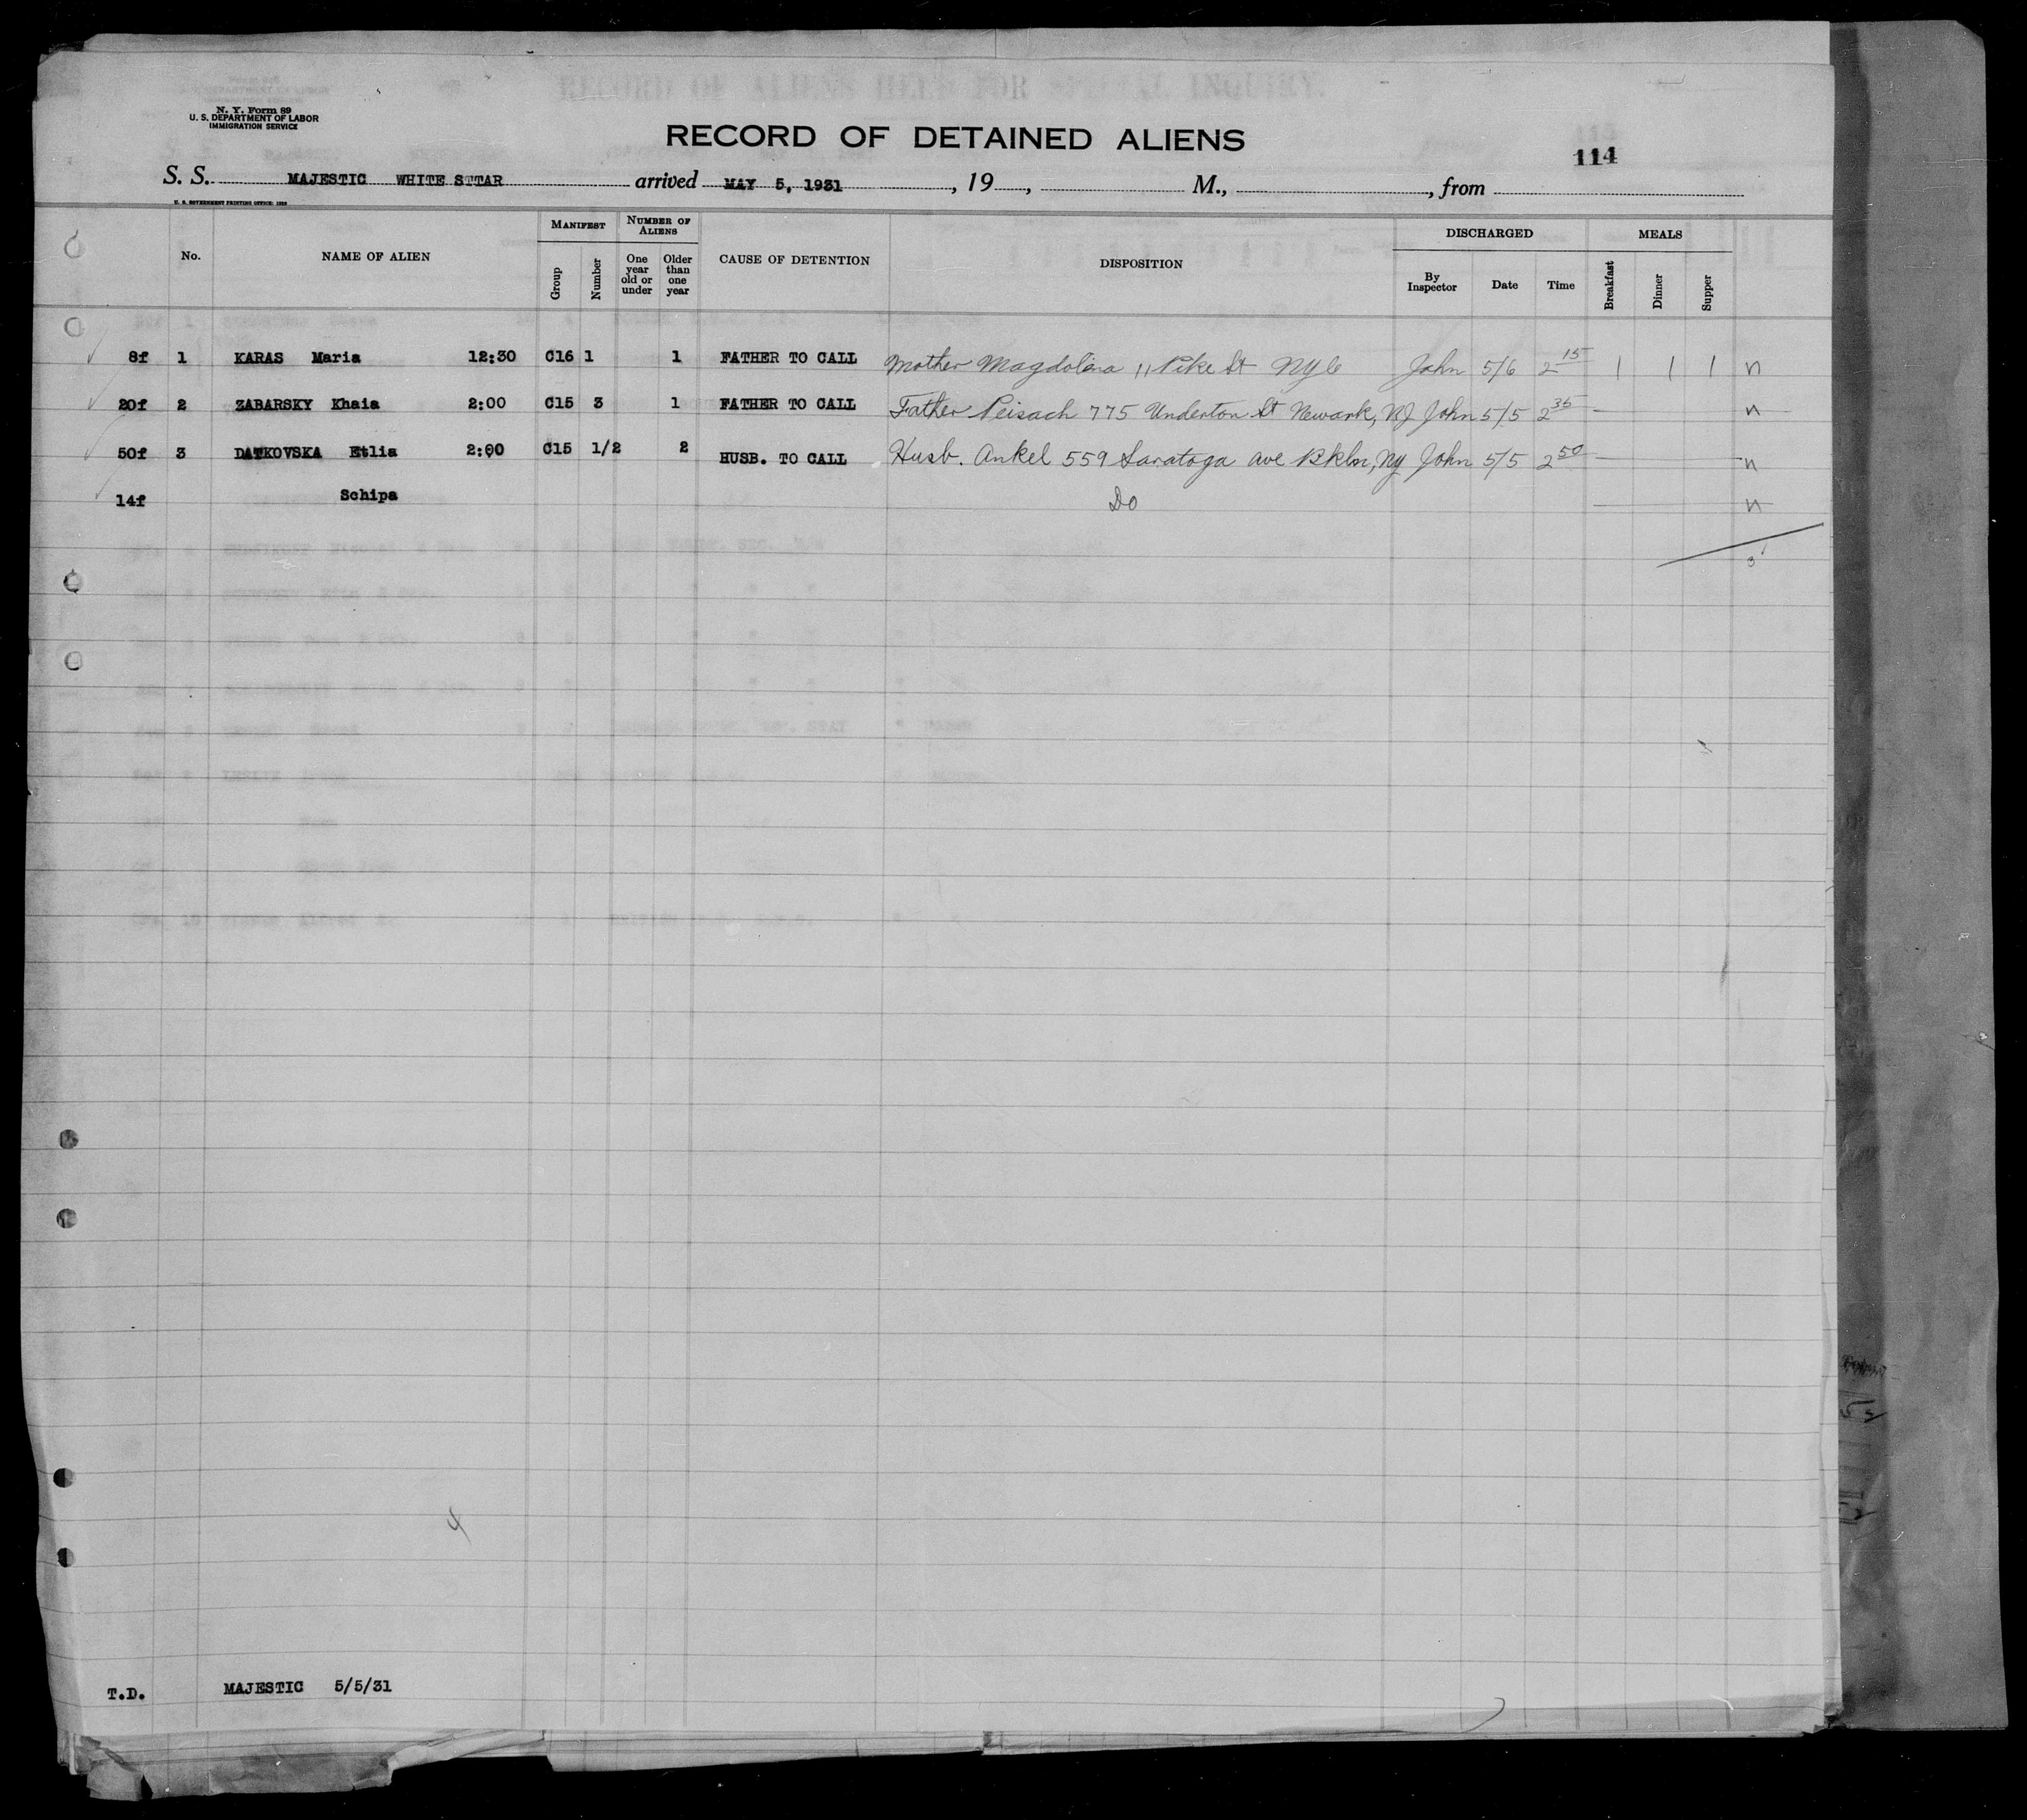 N. Y. Form 89
U. S. DEPARTMENT OF LABOR
IMMIGRATION SERVICE
RECORD OF DETAINED ALIENS
114
S. S. MAJESTIC WHITE STTAR arrived MAY 5, 1931, 19, M., from
U. S. GOVERNMENT PRINTING OFFICE: 1930
No. NAME OF ALIEN MANIFEST Group Number NUMBER OF ALIENS One year old or under Older than one year CAUSE OF DETENTION DISPOSITION DISCHARGED By Inspector Date Time MEALS Breakfast Dinner Supper
8f 1 KARAS Maria 12:30 C16 1 1 FATHER TO CALL Mother Magdolina 11 Pike St NYC John 5/6 2 15 1 1 1 n
20f 2 ZABARSKY Khaia 2:00 C15 3 1 FATHER TO CALL Father Peisach 775 St Newark, NJ John 5/5 2 35 n
50f 3 DATKOVSKA Etlia 2:00 C15 1/2 2 HUSB. TO CALL Husb. Ankel 559 Saratoga ave Bkln, Ny John 5/5 2 50 n
14f Schipa Do n
3
4
T.D. MAJESTIC 5/5/31